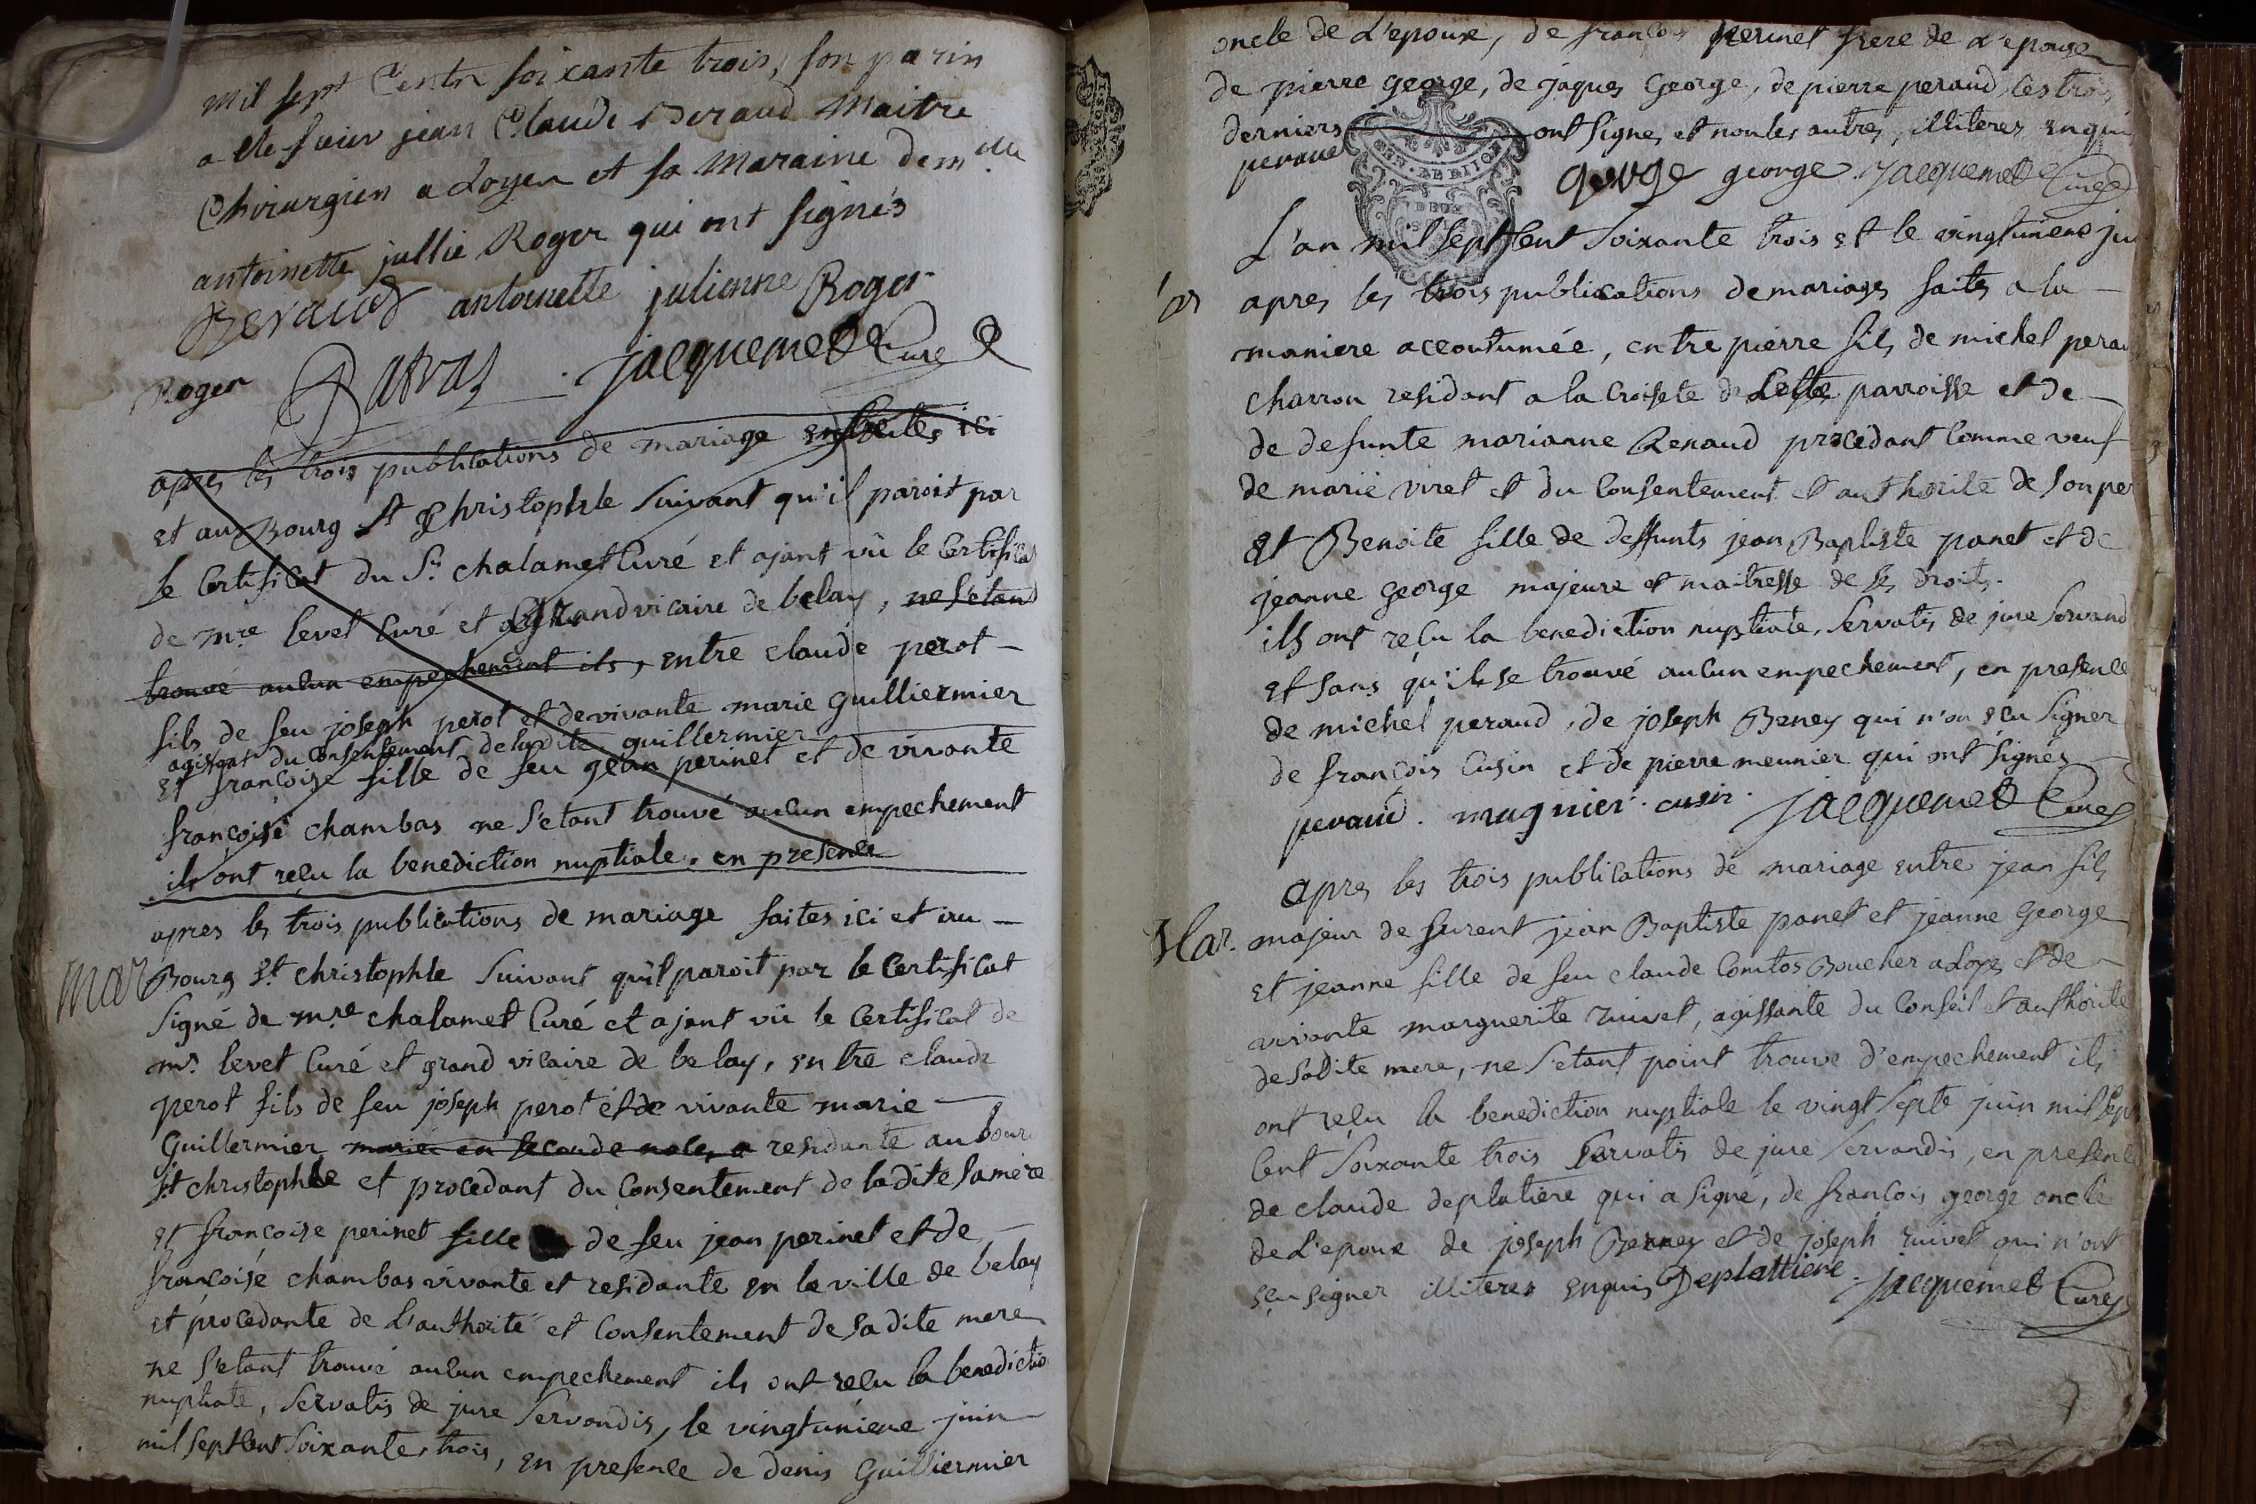 mil sept Cents soixante trois, son parin
a ete sieur jean Claude Beraud Maitre
Chirurgien a Loyen et sa Maraine dem.lle
antoinette jullie Roger qui ont signés
Beraud antoinette julienne Roger
Roger jacquemet Curé
apres les trois publications de mariage ici
et au Bourg St Christophle suivant qu'il paroit par
le Certificat du Sr. chalamet Curé et ajant vû le Certificat
de mre. levet Curé et grand vicaire de belay, ne s'etant
trouvé aucun empechement ils, entre claude perot
fils de feu joseph perot et de vivante marie Guilliermier
agissant du consentement de ladite guillermier
et francoise fille de feu jean perinet et de vivante
françoise chambas ne s'etant trouvé aucun empechement
ils ont reçu la benediction nuptiale, en presence
apres les trois publications de mariage faites ici et au
mar Bourg St. christophle suivant qu'il paroit par le Certificat
signé de mre chalamet Curé et ajant vû le Certificat de
mr. levet Curé et grand vicaire de belay, entre claude
perot fils de feu joseph perot et de vivante marie
Guillermier marié en seconde noces a residante au bourg
St christophle et procedant du consentement de ladite sa mere
et francoise perinet fille de feu jean perinet et de
françoise chambas vivante et residante en la ville de belay
et procedante de l'authorité et consentement de sadite mere
ne s'etant trouvé aucun empechement ils ont reçu la benediction
nuptiale, servatis de jure servandis, le vingtunieme juin
mil sept cent soixante trois, en presence de denis Guilliermier
oncle de L'epoux, de francois perinet frere de L'epouse
de pierre george, de jaques George, de pierre peraud, les trois
derniers ont signes et non les autres, illiteres enquis
peraud george george jacquemet Curé
L'an mil sept cent soixante trois et le vingtunieme jui
apres les trois publications de mariages faites a la
maniere accoutumée, entre pierre fils de michel perau
charron residant a la croisete de cette parroisse et de
de defunte marianne Renaud procedant comme veuf
de marie viret et du consentement et authorité de son per
et Benoite fille de deffunts jean Baptiste panet et de
jeanne george majeure et maitresse de ses droits.
ils ont reçu la benediction nuptiale, servatis de jure servand
et sans qu'il se trouvé aucun empechement, en presence
de michel peraud, de joseph Beney qui n'on sçu signer
de françois Cusin et de pierre meunier qui ont signés
peraud. mugnier. cusin. jacquemet Curé
apres les trois publications de mariage entre jean fils
Mar. majeur de furent jean Baptiste panet et jeanne George
et jeanne fille de feu claude Comtos Boucher a Loyes et de
vivante marguerite ruivet, agissante du conseil et authorité
de sadite mere, ne s'etant point trouvé d'empechement ils
ont reçu la benediction nuptiale le vingt sept juin mil sept
Cent soixante trois servatis de jure servandis, en presence
de claude deplatiere qui a signé, de françois george oncle
de L'epoux de joseph Berney et de joseph ruivet qui n'ont
sçu signer illiteres enquis Deplattiere. jacquemet Curé